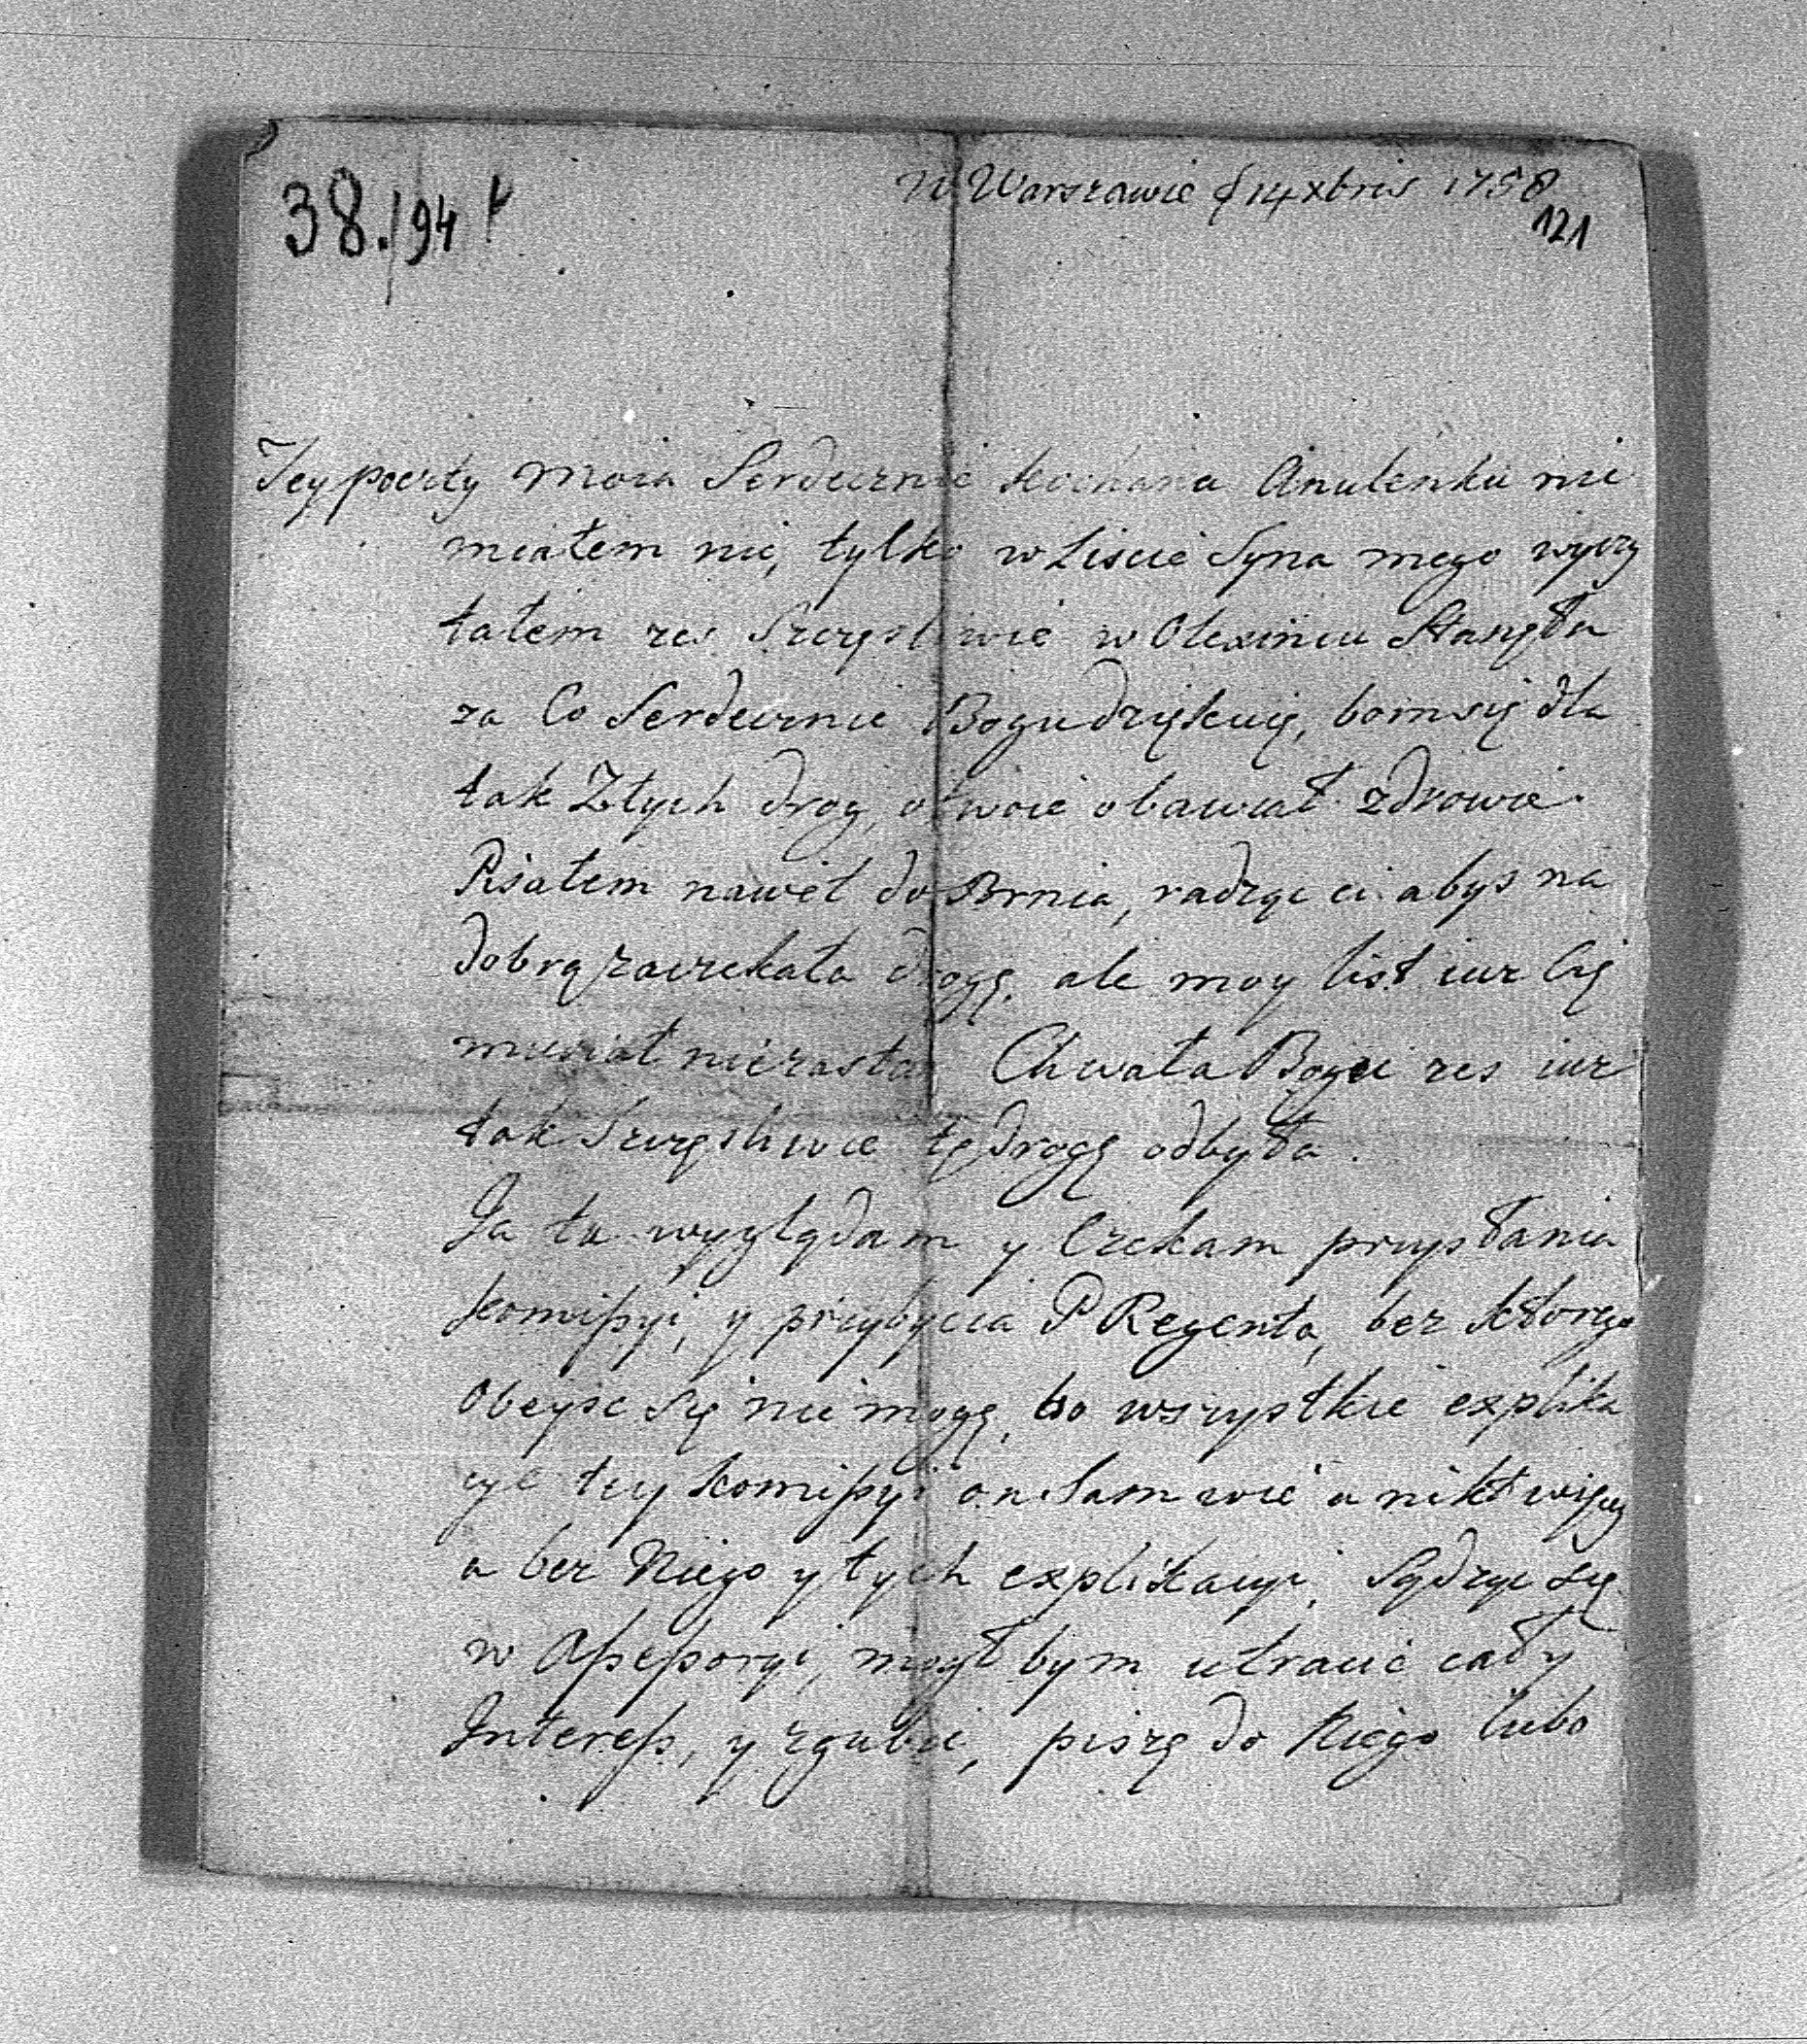 38. / 94
W Warszawie d 14 xbris 1758
121
Tey poczty moia Serdecznie kochana Anulenku nie
miałem nic, tylko w Liscie Syna mego wyczy
tałem zes Szczęsliwie w Olexincu Stanęła
za Co Serdecznie Bogu dziękuię, bom się dla
tak Złych drog, o twoie obawiał zdrowie.
Pisałem nawet do Brnia, radząc ci abys na
dobrą zaczekała drogę, ale moy list iuz Cię
musiał nie zastac Chwała Bogu zes iuz
tak Szczęsliwie tę drogę odbyła.
Ja tu wyglądam y Czekam przysłania
kommissyi, y przybycia P Regenta, bez ktorego
obeysc się nie mogę, bo wszystkie explika
cye tey kommissyi on Sam wie a nikt więcy
a bez Niego y tych explikacyi, Sądząc się
w Assessoryi, mogł bym utracic cały
Interess, y zgubic, piszę do Niego lubo